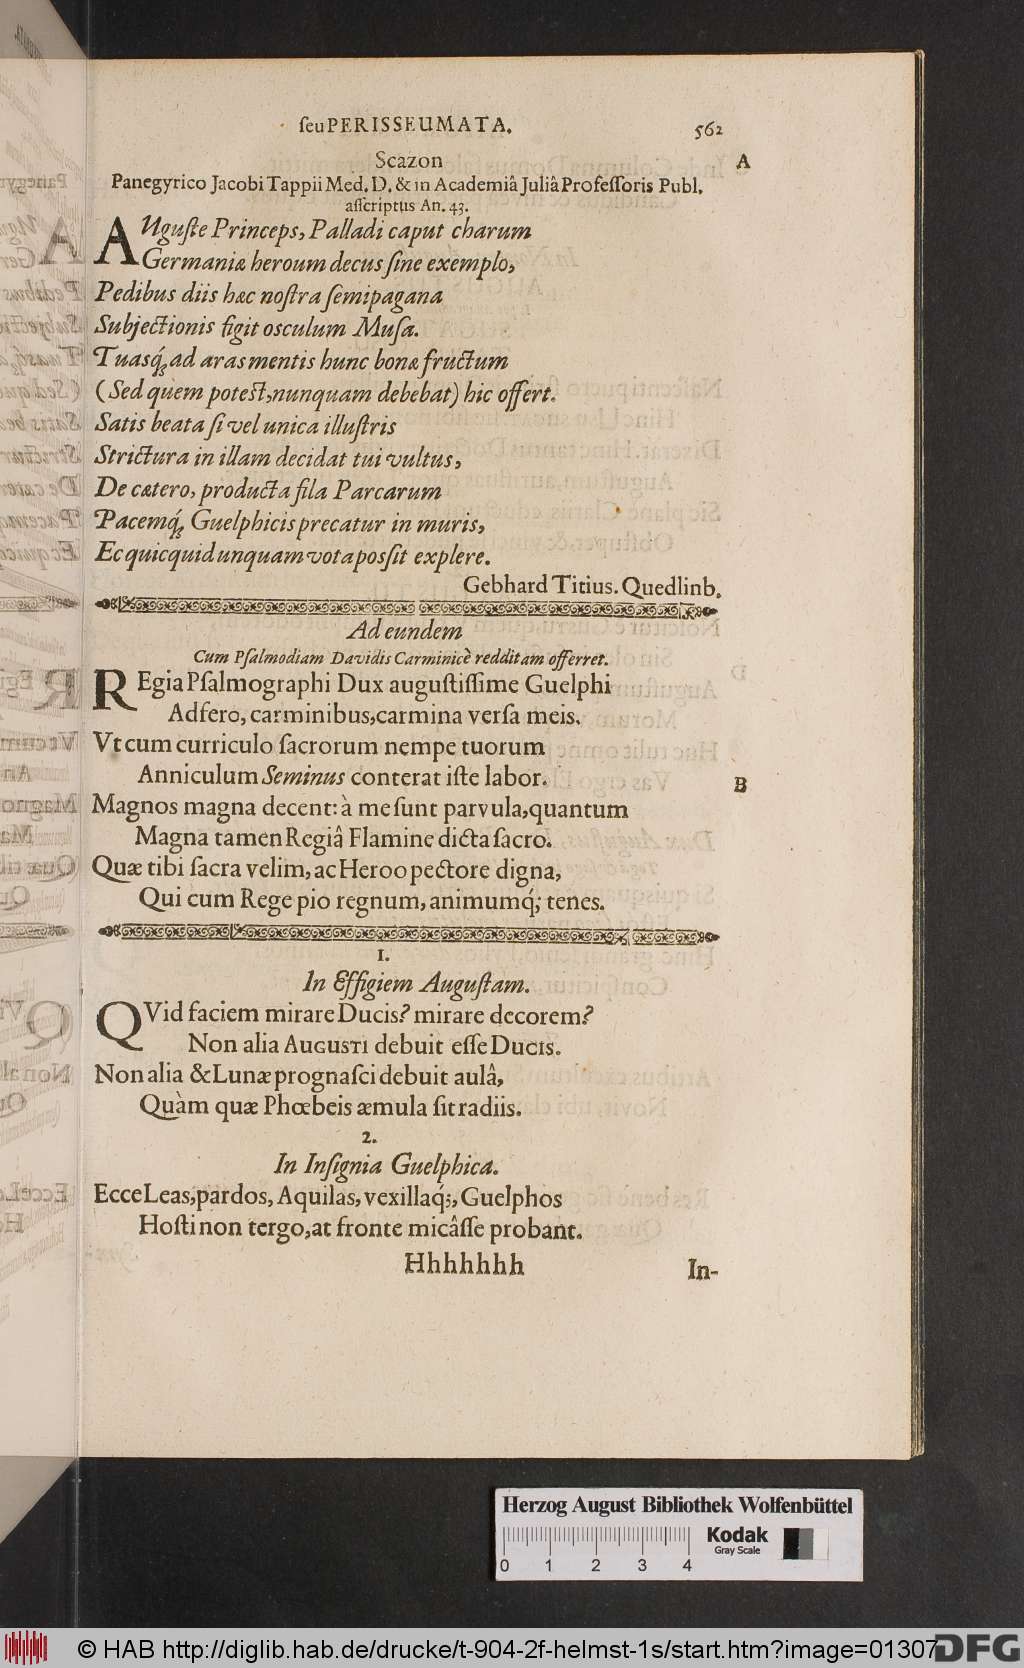 ſeu PERISSEUMATA. 562
Scazon A
Panegyrico Jacobi Tappii Med. D. & in Academiâ Juliâ Profeſſoris Publ.
aſſcriptus An. 43.
AUguſte Princeps, Palladi caput charum
Germaniæ heroum decus ſine exemplo,
Pedibus diis hæc noſtra ſemipagana
Subjectionis figit oſculum Muſa.
Tuasq́; ad aras mentis hunc bonæ fructum
(Sed quem poteſt, nunquam debebat) hic offert.
Satis beata ſi vel unica illuſtris
Strictura in illam decidat tui vultus,
De cætero, producta fila Parcarum
Pacemq́; Guelphicis precatur in muris,
Ecquicquid unquam vota poſſit explere.
Gebhard Titius. Quedlinb.
Ad eundem
Cum Pſalmodiam Davidis Carminicè redditam offerret.
REgia Pſalmographi Dux auguſtiſſime Guelphi
Adfero, carminibus, carmina verſa meis.
Vt cum curriculo ſacrorum nempe tuorum
Anniculum Seminus conterat iſte labor.
B
Magnos magna decent: à me ſunt parvula, quantum
Magna tamen Regiâ Flamine dicta ſacro.
Quæ tibi ſacra velim, ac Heroo pectore digna,
Qui cum Rege pio regnum, animumq́; tenes.
1.
In Effigiem Auguſtam.
QVid faciem mirare Ducis? mirare decorem?
Non alia AUGUSTI debuit eſſe DUCIS.
Non alia & Lunæ prognaſci debuit aulâ,
Quàm quæ Phœbeis æmula ſit radiis.
2.
In Inſignia Guelphica.
Ecce Leas, pardos, Aquilas, vexillaq́;, Guelphos
Hoſti non tergo, at fronte micâſſe probant.
Hhhhhhh In-
Herzog August Bibliothek Wolfenbüttel
Kodak
Gray Scale
0 1 2 3 4
© HAB http://diglib.hab.de/drucke/t-904-2f-helmst-1s/start.htm?image=01307
DFG